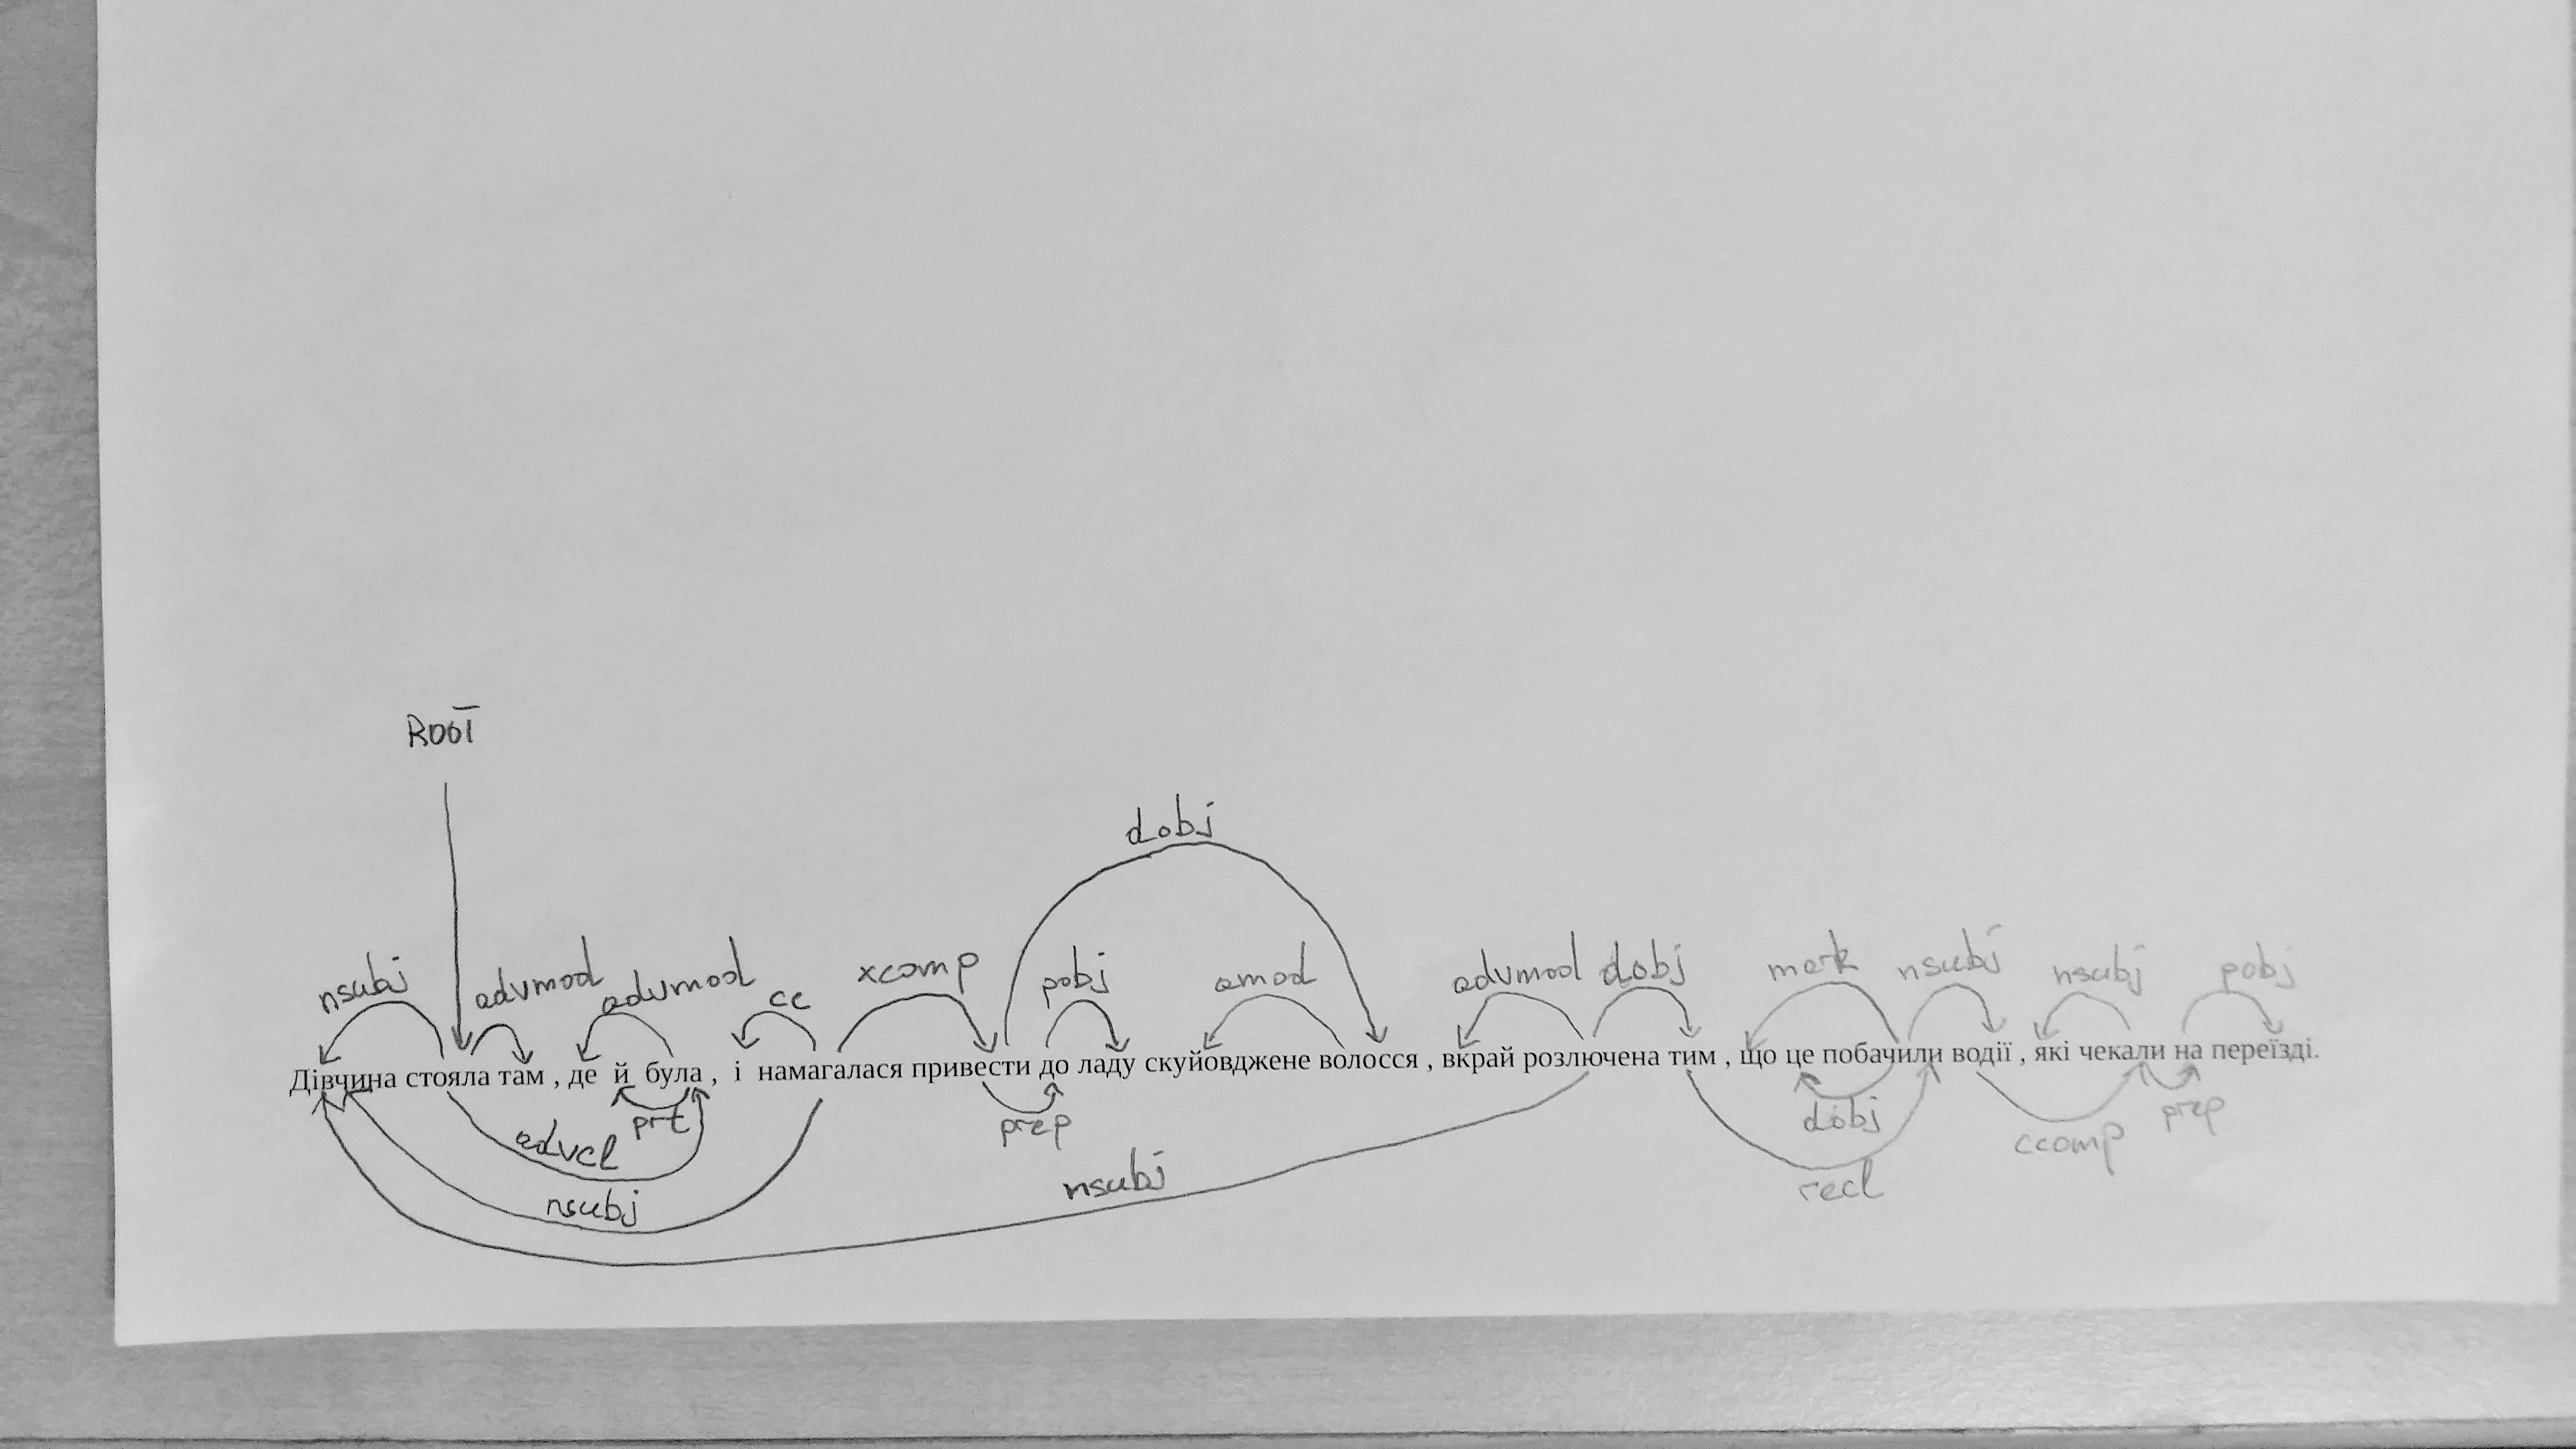 ROOT
dobj
nsubj advmod advmod cc xcomp pobj amod advmod dobj mark nsubj nsubj pobj
Дівчина стояла там , де й була , і намагалася привести до ладу скуйовджене волосся , вкрай розлючена тим , що це побачили водії , які чекали на переїзді.
advcl prt prep dobj ccomp prep
nsubj nsubj rcl